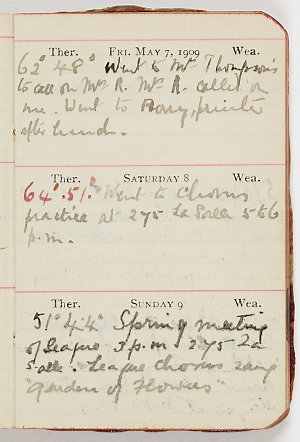 Ther. FRI. MAY 7, 1909 Wea.
62° 48° Went to Mr Thompson's
to call on Mrs R. Mrs R. called on
me. Went to printer
after lunch.
Ther. SATURDAY 8 Wea.
64°. 51°. Went to Chorus
practice at 275 La Salle 5 to 6
p.m.
Ther. SUNDAY 9 Wea.
51° 44° Spring meeting
of League 3 p.m 275 La
Salle. League chorus sang
"Garden of Flowers"